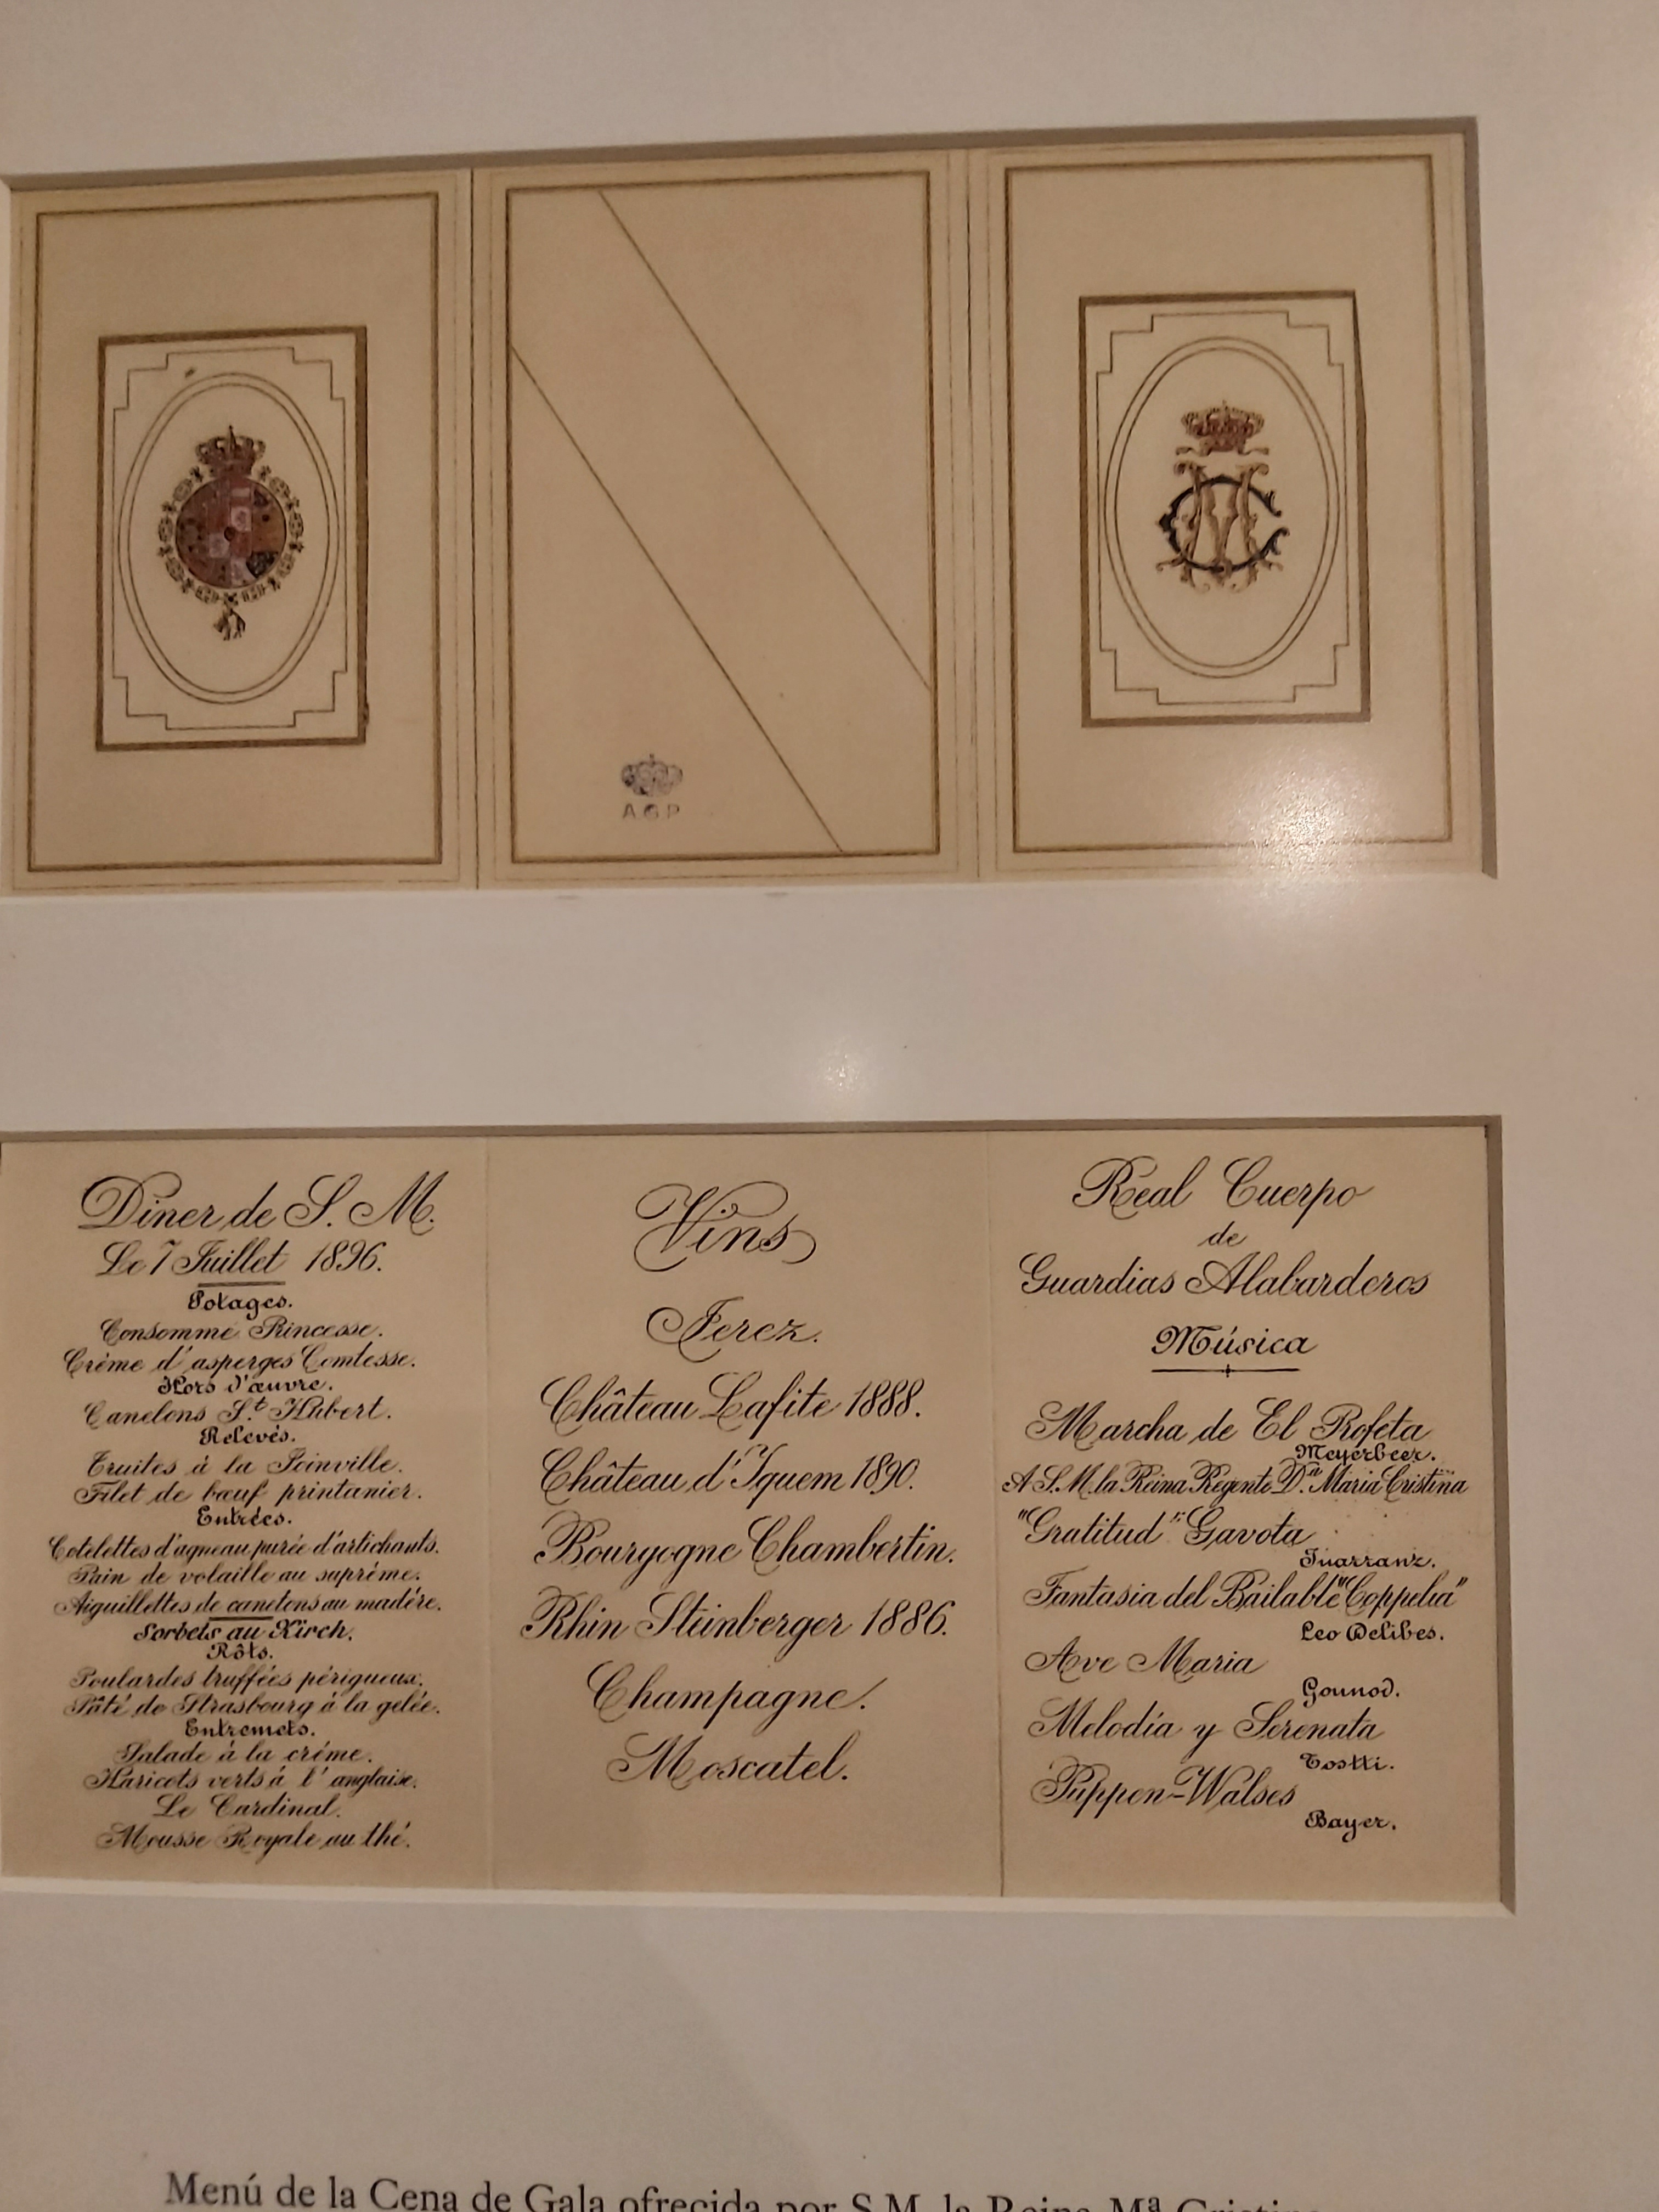 A G P
Diner de S. M.
Le 7 Juillet 1896.
Potages.
Consommé Princesse.
Crême d'asperges Comtesse.
Hors d'œuvre.
Canelons S.t Hubert.
Relevés.
Truites à la Joinville.
Filet de bœuf printanier.
Entrées.
Cotelettes d'agneau purée d'artichauts.
Pain de volaille au suprême.
Aiguillettes de canetons au madère.
Sorbets au Kirch.
Rôts.
Poulardes truffées périgueux.
Pâté de Strasbourg à la gelée.
Entremets.
Salade à la crême.
Haricots verts à l'anglaise.
Le Cardinal.
Mousse Royale au thé.
Vins
Jerez.
Château Lafite 1888.
Château d'Yquem 1890.
Bourgogne Chambertin.
Rhin Steinberger 1886.
Champagne.
Moscatel.
Real Cuerpo
de
Guardias Alabarderos
Música
Marcha de El Profeta
Meyerbeer.
A S.M. la Reina Regente D.ª Maria Cristina
"Gratitud" Gavota
Juarranz.
Fantasia del Bailable "Coppelia"
Leo Delibes.
Ave Maria
Gounod.
Melodía y Serenata
Tostti.
Puppen-Walses
Bayer.
Menú de la Cena de Gala ofrecida por S.M. la Reina Mª Cristina